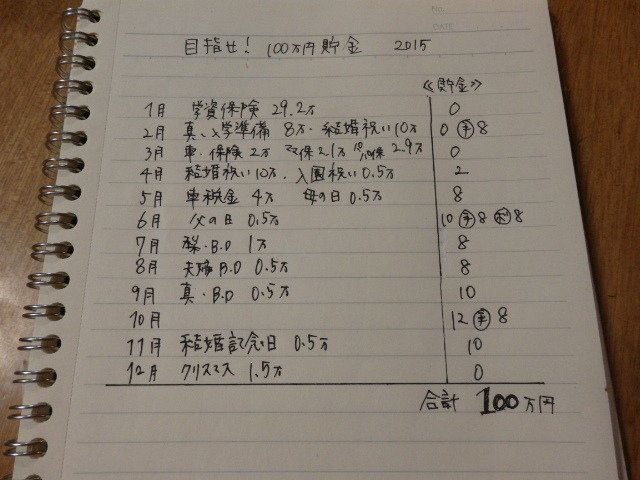 No.
DATE
目指せ! 100万円貯金 2015
《貯金》
1月 学資保険 29.2万 0
2月 真、入学準備 8万・結婚祝い10万 0 ㊍8
3月 車・保険 2万 ママ保2.1万 パパ保2.9万 0
4月 結婚祝い10万、入園祝い0.5万 2
5月 車税金 4万 母の日 0.5万 8
6月 父の日 0.5万 10 8 8
7月 梨・B.D 1万 8
8月 夫婦B.D 0.5万 8
9月 真・B.D 0.5万 10
10月 12 8
11月 結婚記念日 0.5万 10
12月 クリスマス 1.5万 0
合計 100万円